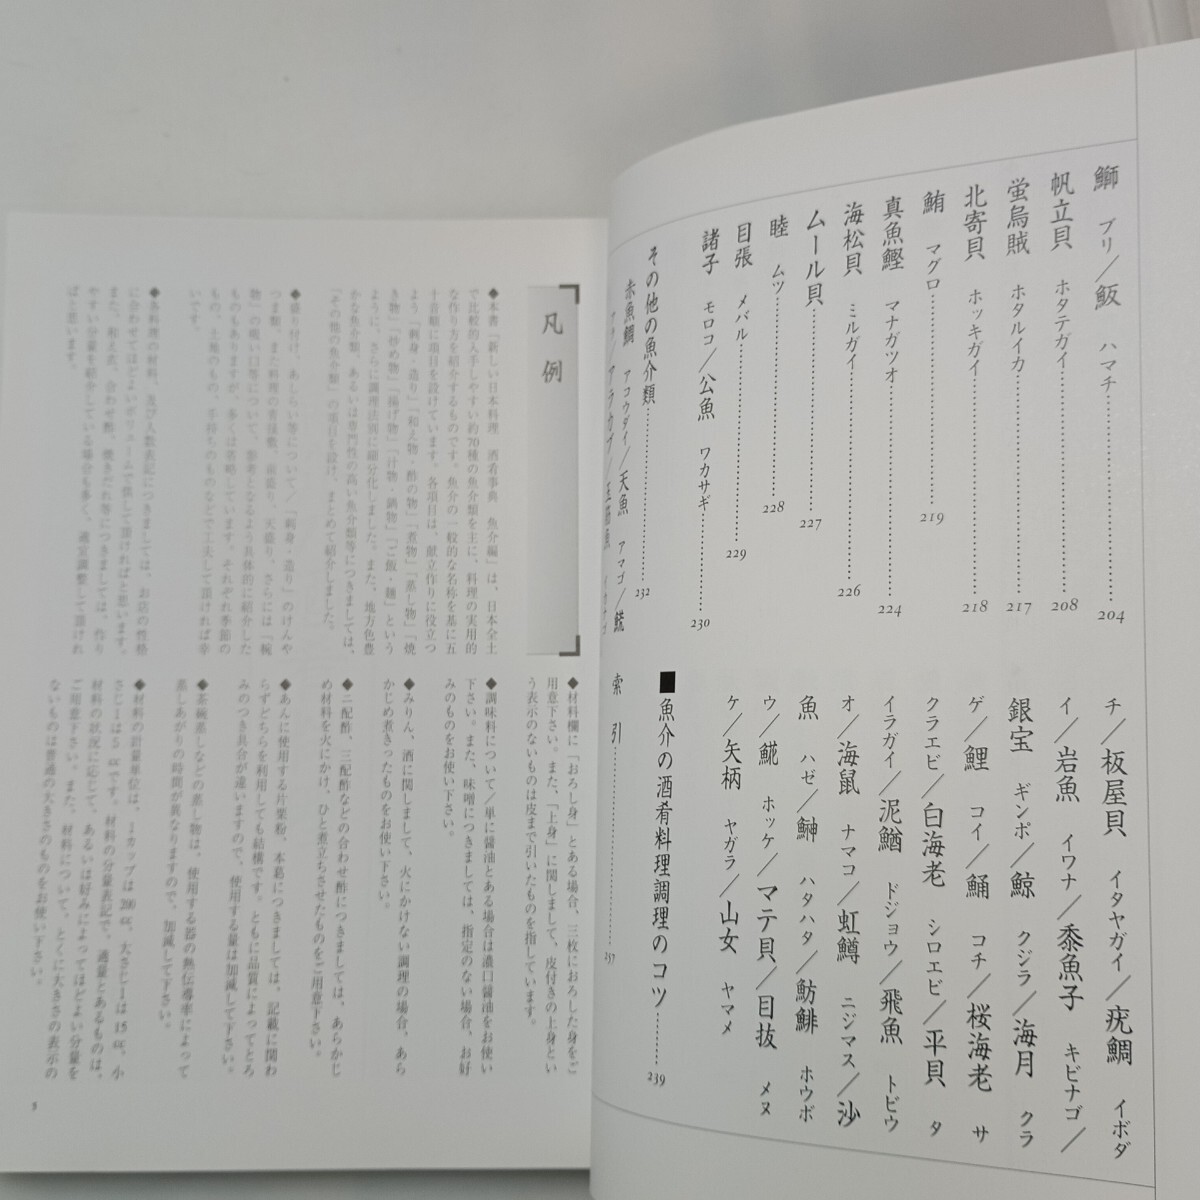 鰤 ブリ／魬 ハマチ 204
帆立貝 ホタテガイ 208
蛍烏賊 ホタルイカ 217
北寄貝 ホッキガイ 218
鮪 マグロ 219
真魚鰹 マナガツオ 224
海松貝 ミルガイ 226
ムール貝 227
睦 ムツ 228
目張 メバル 229
諸子 モロコ／公魚 ワカサギ 230
その他の魚介類 232
赤魚鯛 アコウダイ／天魚 アマゴ／
チ／板屋貝 イタヤガイ／疣鯛 イボダ
イ／岩魚 イワナ／黍魚子 キビナゴ／
銀宝 ギンポ／鯨 クジラ／海月 クラ
ゲ／鯉 コイ／鯒 コチ／桜海老 サ
クラエビ／白海老 シロエビ／平貝 タ
イラガイ／泥鰌 ドジョウ／飛魚 トビウ
オ／海鼠 ナマコ／虹鱒 ニジマス／沙
魚 ハゼ／鰰 ハタハタ／魴鮄 ホウボ
ウ／𩸽 ホッケ／マテ貝／目抜 メヌ
ケ／矢柄 ヤガラ／山女 ヤマメ
■魚介の酒肴料理調理のコツ 239
索引 257
凡例
◆本書「新しい日本料理 酒肴事典 魚介編」は、日本全土
で比較的入手しやすい約70種の魚介類を主に、料理の実用的
な作り方を紹介するものです。魚介の一般的な名称を基に五
十音順に項を設けています。各項目は、献立作りに役立つ
よう「刺身・造り」「和え物・酢の物」「煮物」「蒸し物」「焼
き物」「炒め物」「揚げ物」「汁物・鍋物」「ご飯・麺」という
ように、さらに調理法別に細分化しました。また、地方色豊
かな魚介類、あるいは専門性の高い魚介類等につきましては、
「その他の魚介類」の項目を設け、まとめて紹介しました。
◆盛り付け、あしらい等について／「刺身・造り」のけんや
つま類、また料理の香辣数、前盛り、天盛り、さらには「椀
物」の吸い口等について、参考となるよう具体的に紹介した
ものもありますが、多くは省略しています。それぞれ季節の
もの、土地のもの、手持ちのものなどで工夫して頂ければ幸
いです。
◆各料理の材料、及び人数表記につきましては、お店の性格
に合わせてほどよいボリュームで供して頂ければと思います。
また、和え衣、合わせ酢、焼きだれ等につきましては、作り
やすい分量を紹介している場合も多く、適宜調整して頂けれ
ばと思います。
◆材料欄に「おろし身」とある場合、三枚におろした身をご
用意下さい。また、「上身」に関しまして、皮付きの上身とい
う表示のないものは皮まで引いたものを指しています。
◆調味料について／単に醤油とある場合は濃口醤油をお使い
下さい。また、味噌につきましては、指定のない場合、お好
みのものをお使い下さい。
◆みりん、酒に関しまして、火にかけない調理の場合、あら
かじめ煮きったものをお使い下さい。
◆二配酢、三配酢などの合わせ酢につきましては、あらかじ
め材料を火にかけ、ひと煮立ちさせたものをご用意下さい。
◆あんに使用する片栗粉、本葛につきましては、記載に関わ
らずどちらを利用しても結構です。ともに品質によってとろ
みのつき具合が違いますので、使用する量は加減して下さい。
◆茶碗蒸しなどの蒸し物は、使用する器の熱伝導率によって
蒸しあがりの時間が異なりますので、加減して下さい。
◆材料の計量単位は、1カップは200cc、大さじ1は15cc、小
さじ1は5ccです。材料の分量表記で、適量とあるものは、
材料の状況に応じて、あるいは好みによってほどよい分量を
ご用意下さい。また、材料について、とくに大きさの表示の
ないものは普通の大きさのものをお使い下さい。
5